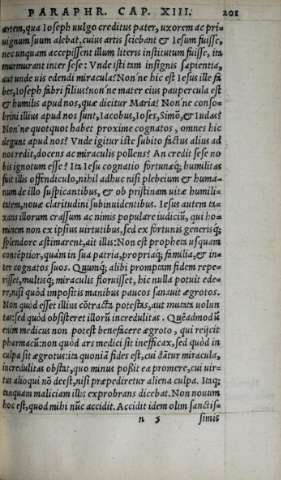 PARAPHR. CAP. XIII. 201
artem, qua Ioseph uulgo creditus pater, uxorem ac pri-
uignum suum alebat, cuius artis sciebant & Iesum fuisse,
nec unquam accepissent illum literis institutum fuisse, in
murmurant inter sese: Vnde isti tam insignis sapientia,
aut unde uis edendi miracula? Non ne hic est Iesus ille fa
ber, Ioseph fabri filius? non ne mater eius paupercula est
& humilis apud nos, quæ dicitur Maria? Non ne conso-
brini illius apud nos sunt, Iacobus, Ioses, Simõ, & Iudas?
Non ne quotquot habet proxime cognatos, omnes hic
degunt apud nos? Vnde igitur iste subito factus alius ad
nos redit, docens ac miraculis pollens? An credit sese no
bis ignotum esse? Ita Iesu cognatio fortunæq; humilitas
fuit illis offendiculo, nihil adhuc nisi plebeium & huma-
num de illo suspicantibus, & ob pristinam uitæ humili-
tatem, nouæ claritudini subinuidentibus. Iesus autem ta-
xans illorum crassum ac nimis populare iudiciũ, qui ho-
minem non ex ipsius uirtutibus, sed ex fortunis generisq;
splendore æstimarent, ait illis: Non est propheta usquam
contẽptior, quàm in sua patria, propriaq; familia, & in-
ter cognatos suos. Quumq; alibi promptam fidem repe-
risset, multisq; miraculis floruisset, hic nulla potuit ede-
re, nisi quòd impositis manibus paucos sanauit ægrotos.
Non quòd esset illius cõtracta potestas, aut mutata uolun
tas: sed quòd obsisteret illorũ incredulitas. Quẽadmodũ
enim medicus non potest benefacere ægroto, qui reijcit
pharmacũ: non quòd ars medici sit inefficax, sed quòd in
culpa sit ægrotus: ita quoniã fides est, cui dãtur miracula,
incredulitas obstat, quo minus possit ea promere, cui uir-
tus alioqui nõ deest, nisi præpediretur aliena culpa. Itaq;
tanquam maliciam illis exprobrans dicebat. Non nouum
hoc est, quod mihi nũc accidit. Accidit idem olim sanctis-
n 5 simis